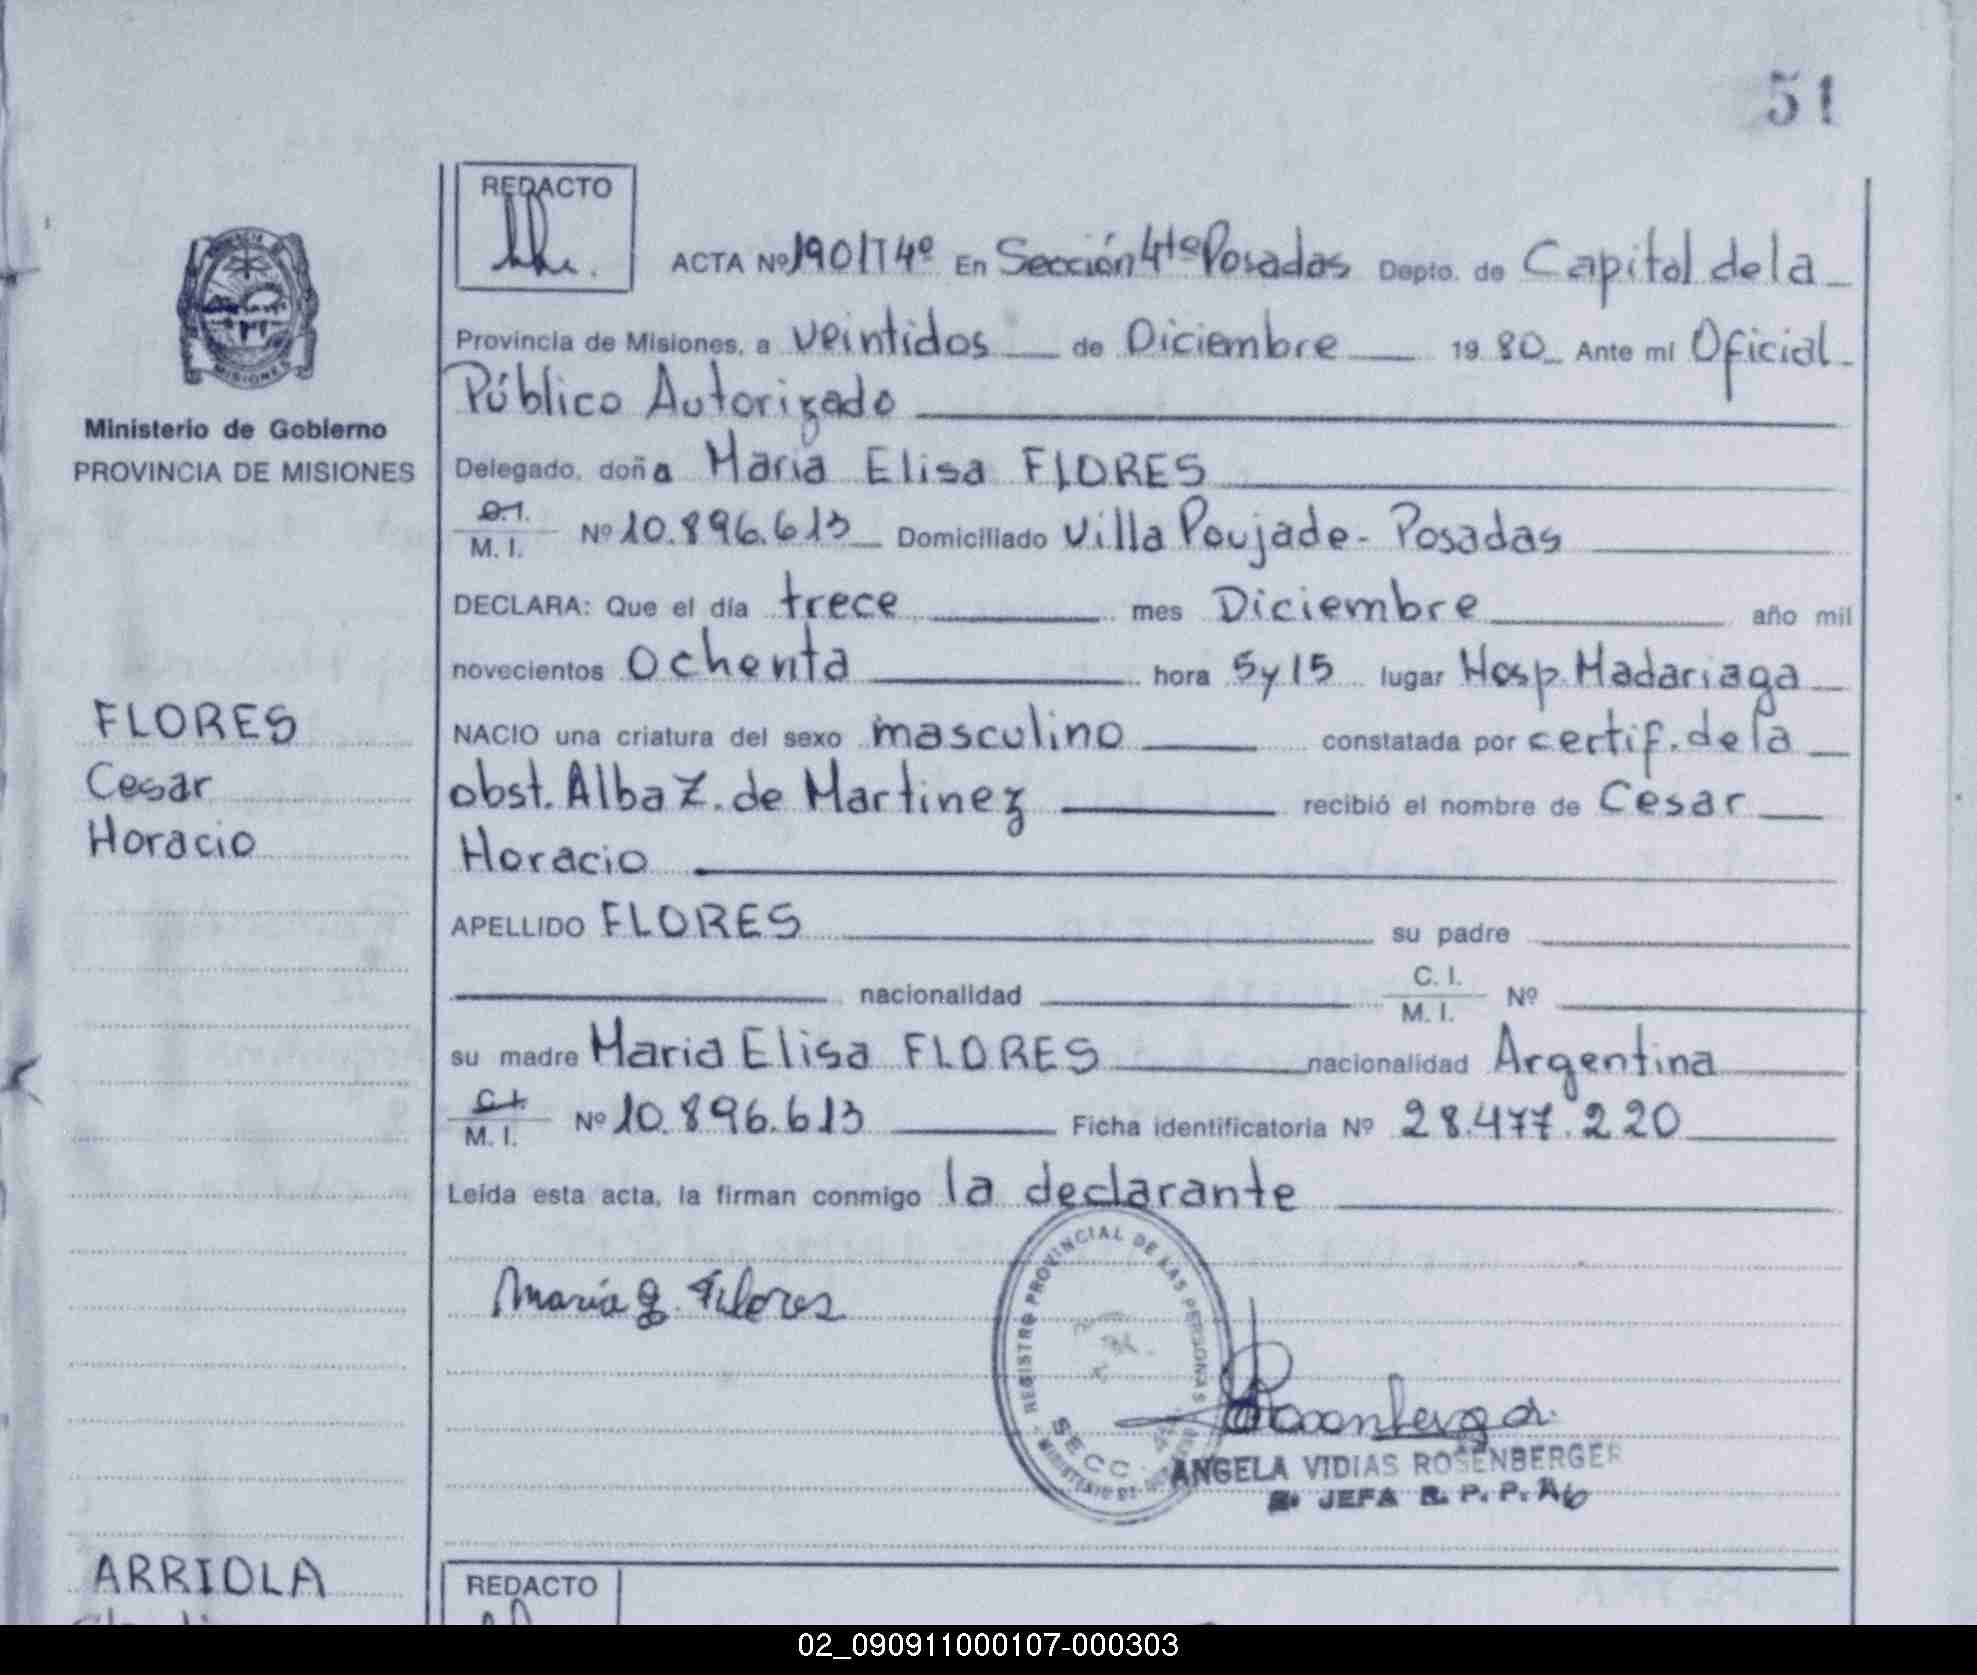 51
REDACTO
ACTA Nº 190/T4º En Sección 4ta Posadas Depto. de Capital de la
Provincia de Misiones, a veintidos de Diciembre 1980 Ante mi Oficial
Público Autorizado
Ministerio de Gobierno
PROVINCIA DE MISIONES
Delegado, doña Maria Elisa FLORES
C.I.
M. I. Nº 10.896.613 Domiciliado Villa Poujade - Posadas
DECLARA: Que el día trece mes Diciembre año mil
novecientos ochenta hora 5 y 15 lugar Hosp. Madariaga
FLORES
Cesar
Horacio
NACIO una criatura del sexo masculino constatada por certif. de la
obst. Alba Z. de Martinez recibió el nombre de Cesar
Horacio
APELLIDO FLORES su padre
nacionalidad C. I.
M. I. Nº
su madre Maria Elisa FLORES nacionalidad Argentina
C.I.
M. I. Nº 10.896.613 Ficha identificatoria Nº 28.477.220
Leída esta acta, la firman conmigo la declarante
María E. Flores
REGISTRO PROVINCIAL DE LAS PERSONAS
MINISTERIO DE GOBIERNO
SECC. 4ª
ANGELA VIDIAS ROSENBERGER
JEFA R. P. P.
ARRIOLA
REDACTO
02_090911000107-000303
MISIONES